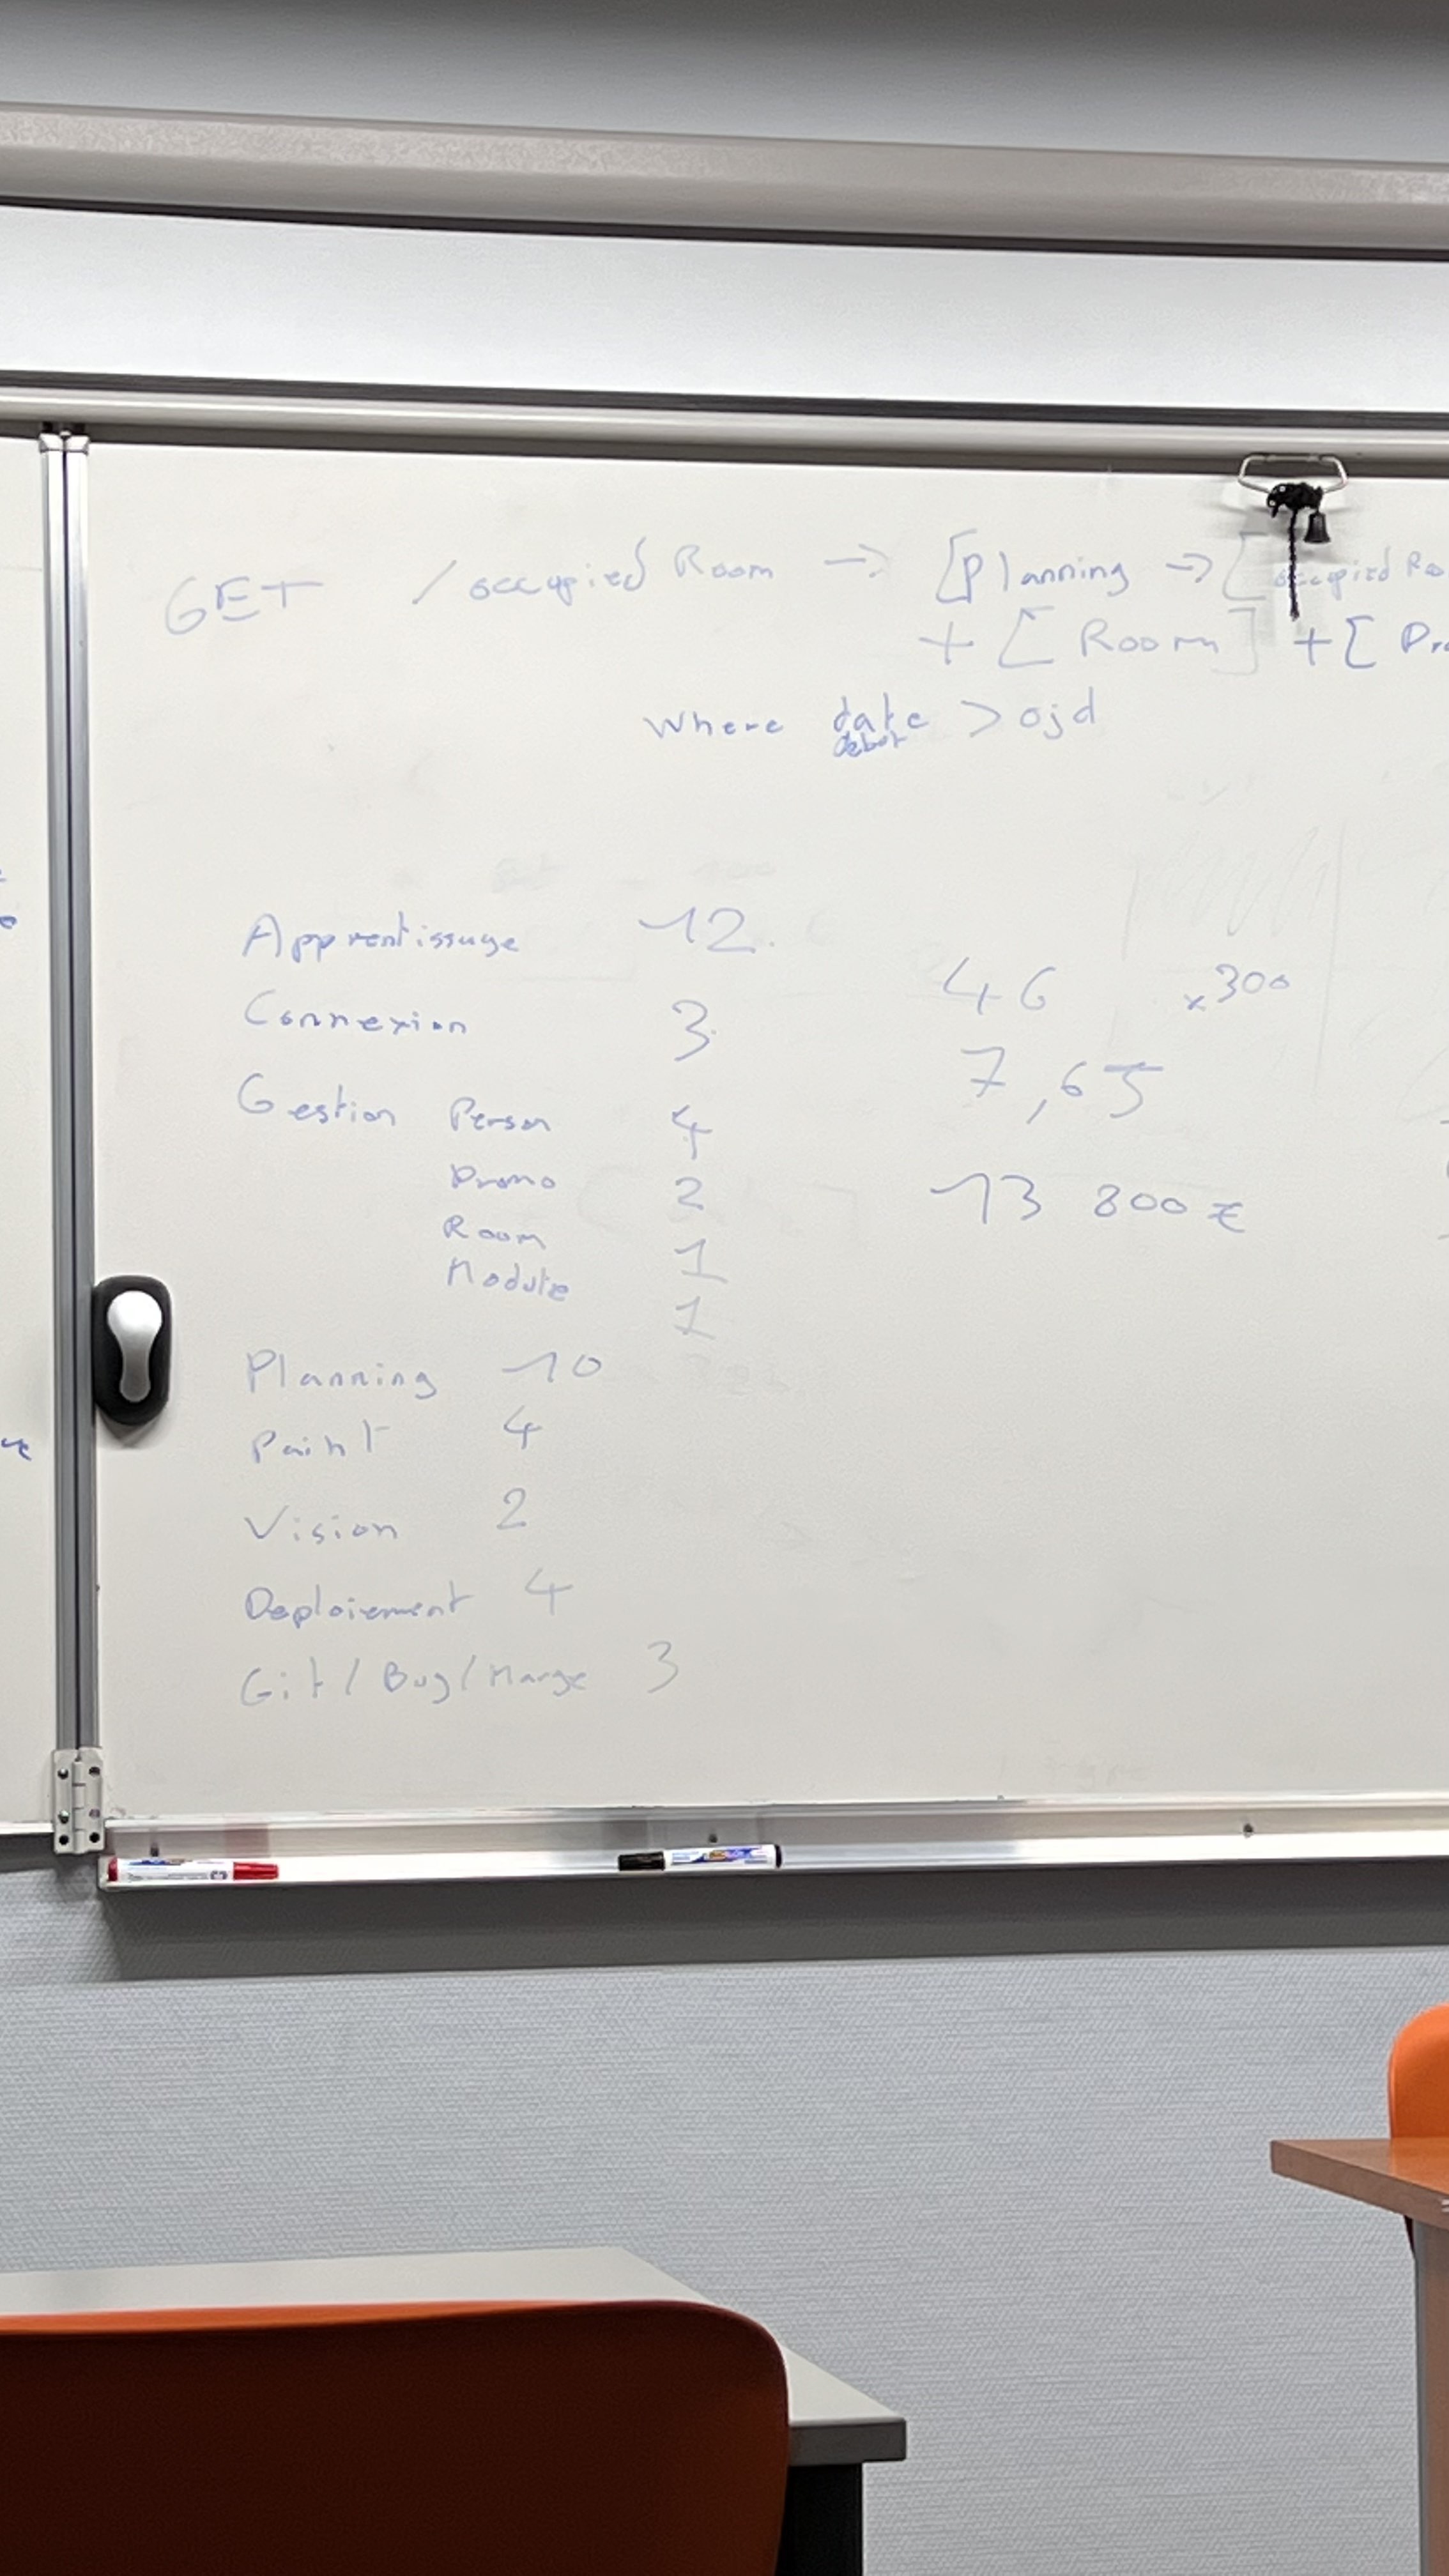 GET /occupied Room -> [Planning -> [occupied Ro
+ [Room] + [Pro
Where date > ojd
debut
Apprentissage 12
Connexion 3
Gestion Person 4
Promo 2
Room 1
Module 1
Planning 10
Paint 4
Vision 2
Deploiement 4
Git / Bug / Marge 3
46 x300
7,65
13 800 €